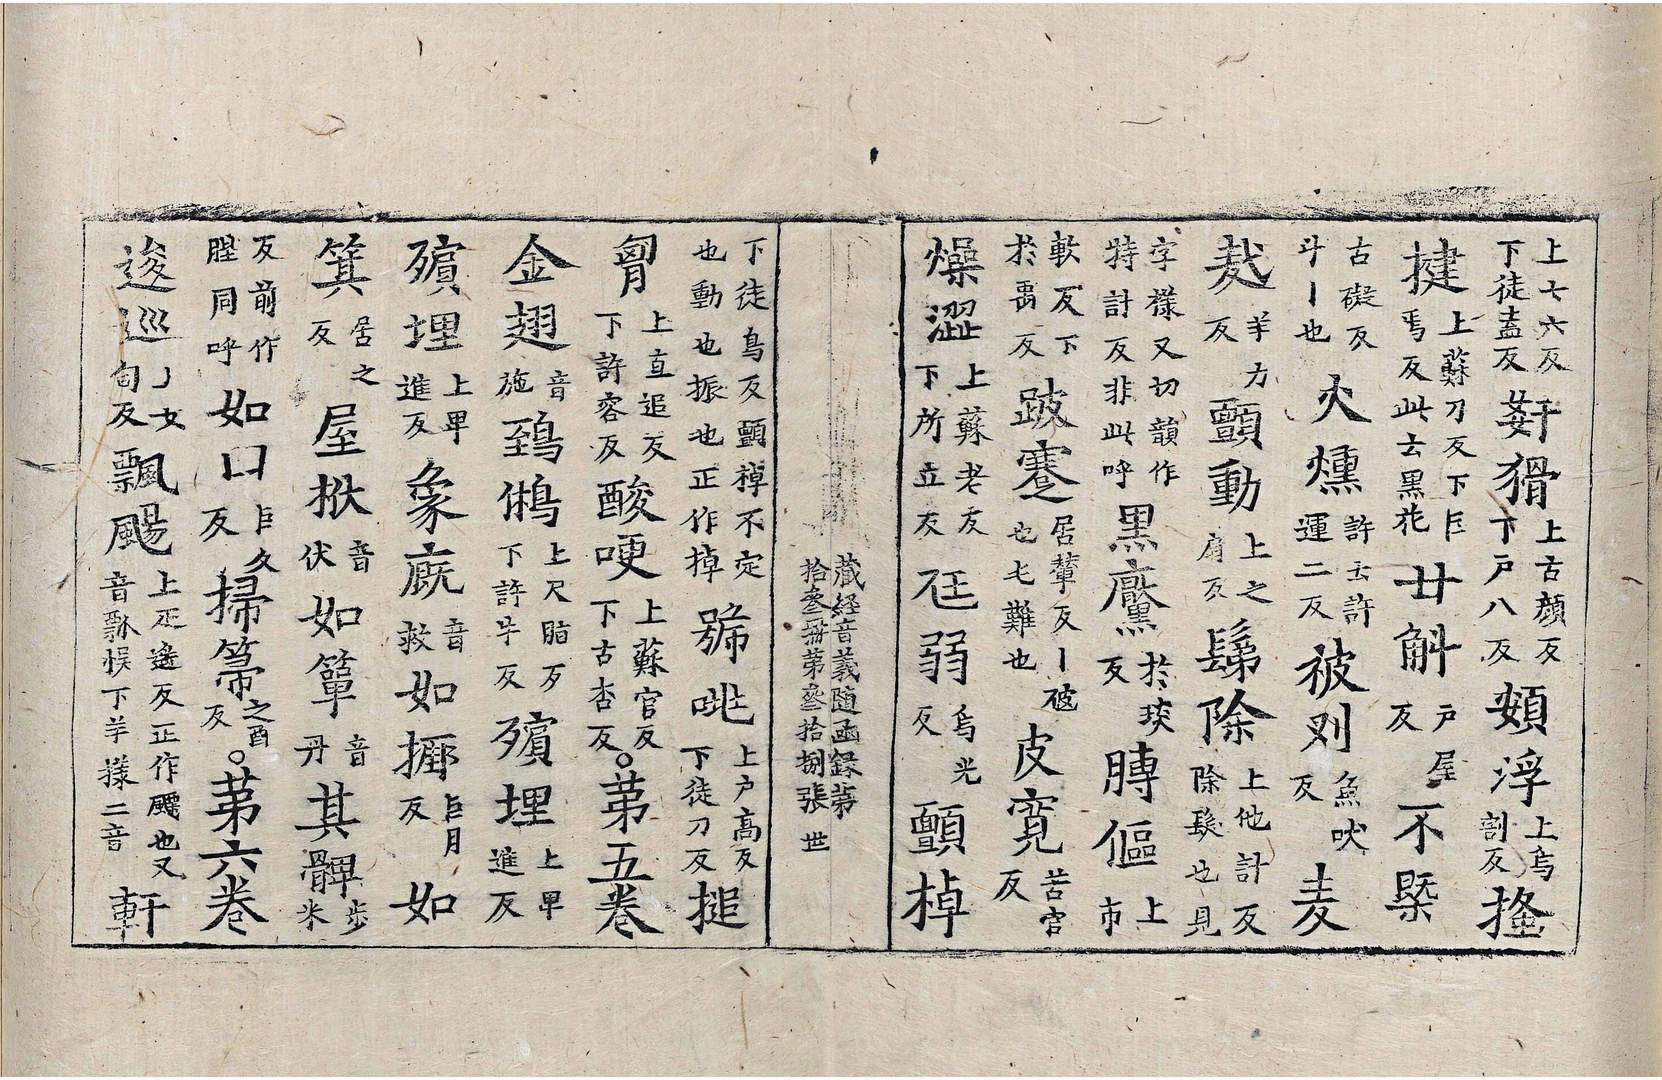 上七六反下徒盍反姧猾上古顔反下戸八反頞浮上烏割反搔
揵上蘇刀反下巨焉反此去黒花廿斛戸屋反不槩
古礙反斗丨也火燻許云許運二反被刖魚吠反麦
麸羊力反顫動上之扇反鬀除上他計反除髮也見
字樣又切韻作特計反非此呼黒黶於琰反膊傴上市
軟反下於禹反跛蹇居輦反丨䟦也乇難也皮寛苦官反
燥澀上蘇老反下所立反尫弱烏光反顫棹
藏経音義随函録第
拾叁冊第叁拾捌張 世
下徒鳥反顫掉不定也動也振也正作掉號咷上戸高反下徒刀反搥
胷上直追反下許容反酸哽上蘇官反下古杏反。苐五巻
金翅音施鵄鵂上尺脂反下許牛反殯埋上卑進反
殯埋上卑進反象廐音救如撅巨月反如
箕居之反屋栿音伏如簞音丹其髀步米
反前作䏶同呼如臼巨久反掃箒之酉反。苐六巻
逡巡丿女旬反飄颺上疋遙反正作飃也又音瓢悮下羊㨾二音軒